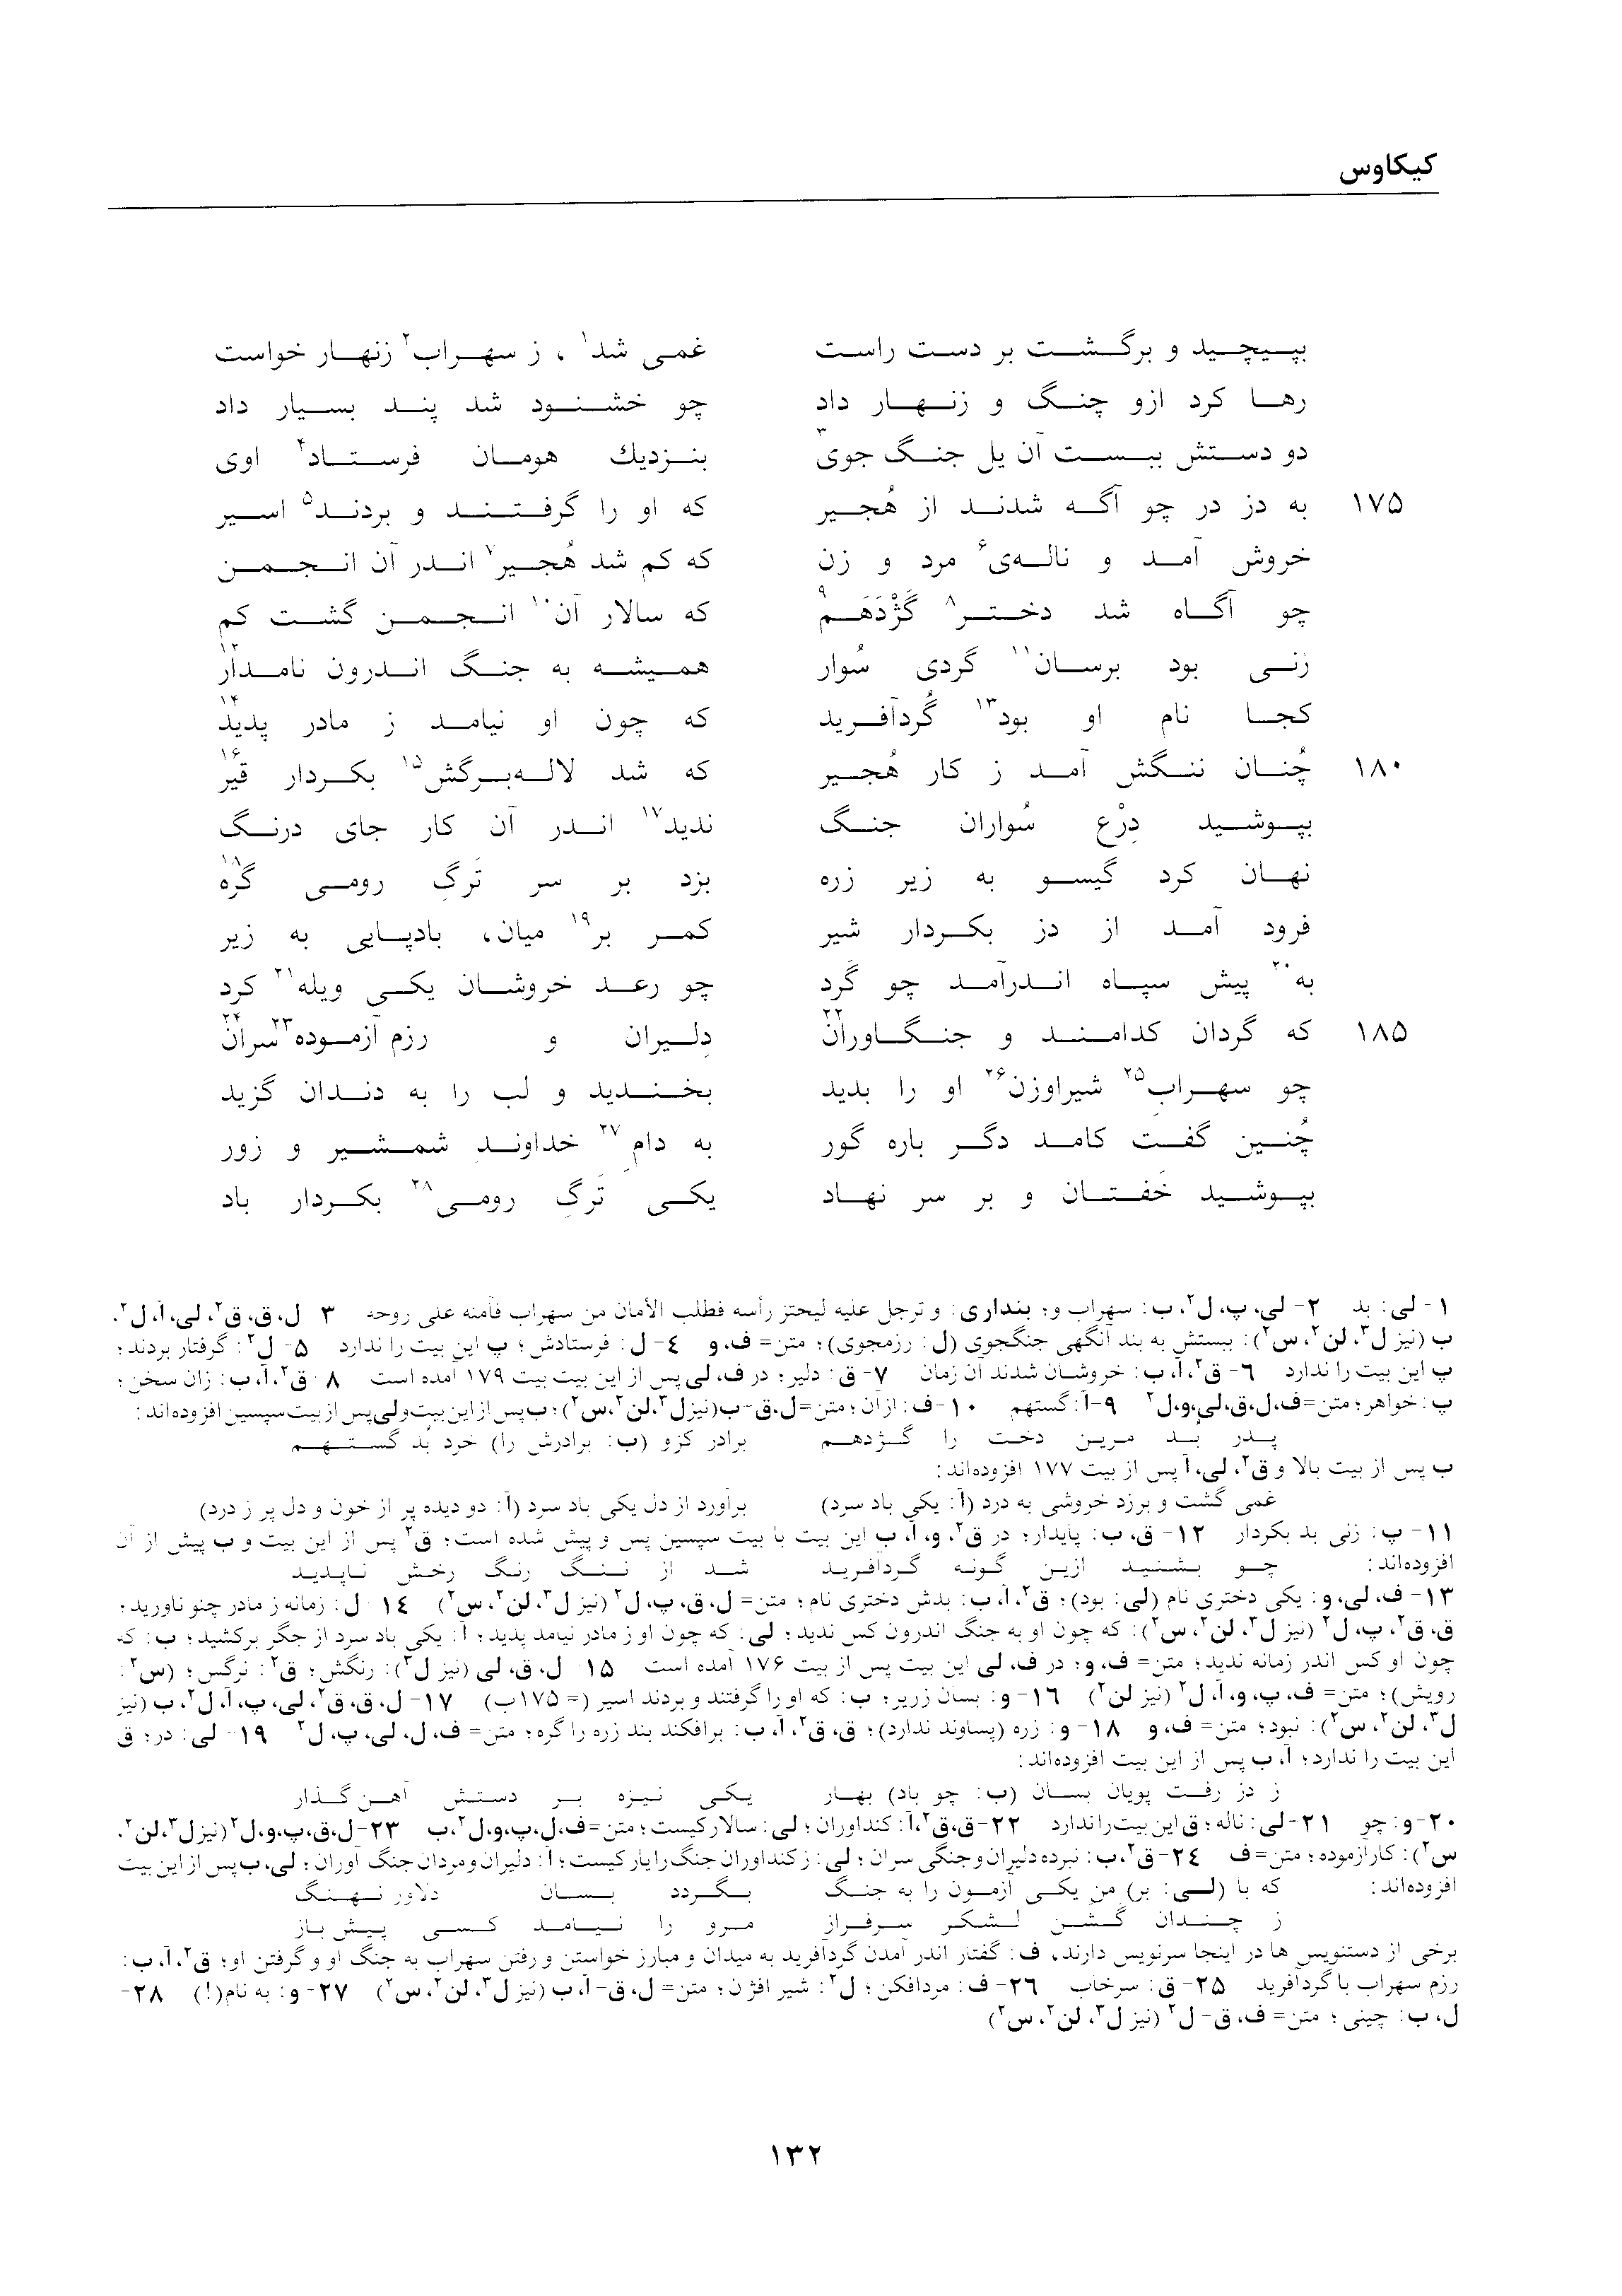 کیکاوس
بپیچید و برگشت بر دست راست غمی شد۱، ز سهراب۲ زنهار خواست
رها کرد ازو چنگ و زنهار داد چو خشنود شد پند بسیار داد
دو دستش ببست آن یل جنگ جوی۳ بنزدیك هومان فرستاد۴ اوی
۱۷۵ به دز در چو آگه شدند از هُجیر که او را گرفتند و بردند۵ اسیر
خروش آمد و ناله‌ی۶ مرد و زن که کم شد هُجیر۷ اندر آن انجمن
چو آگاه شد دختر۸ گَژْدَهَم۹ که سالار آن۱۰ انجمن گشت کم
زنی بود برسان۱۱ گردی سُوار همیشه به جنگ اندرون نامدار۱۲
کجا نام او بود۱۳ گُردآفرید که چون او نیامد ز مادر پدید۱۴
۱۸۰ چُنان ننگش آمد ز کار هُجیر که شد لاله‌برگش۱۵ بکردار قیر۱۶
بپوشید دِرْعِ سُواران جنگ ندید۱۷ اندر آن کار جای درنگ
نهان کرد گیسو به زیر زره بزد بر سر تَرگِ رومی گره۱۸
فرود آمد از دز بکردار شیر کمر بر۱۹ میان، بادپایی به زیر
به۲۰ پیش سپاه اندرآمد چو گَرد چو رعد خروشان یکی ویله۲۱ کرد
۱۸۵ که گردان کدامند و جنگاوران۲۲ دِلیران و رزم آزموده۲۳ سران۲۴
چو سهراب۲۵ شیراوزن۲۶ او را بدید بخندید و لب را به دندان گزید
چُنین گفت کامد دگر باره گور به دامِ۲۷ خداوندِ شمشیر و زور
بپوشید خَفتان و بر سر نهاد یکی تَرگِ رومی۲۸ بکردار باد
۱- لی: بد ۲- لی، پ، ل۲، ب: سهراب و؛ بنداری: و ترجل علیه لیحتز رأسه فطلب الأمان من سهراب فأمنه علی روحه ۳ ل، ق، ق۲، لی، آ، ل۲،
ب (نیز ل۳، لن۲، س۲): ببستش به بند آنگهی جنگجوی (ل: رزمجوی)؛ متن= ف، و ۴- ل: فرستادش؛ پ این بیت را ندارد ۵- ل۲: گرفتار بردند؛
پ این بیت را ندارد ۶- ق۲، آ، ب: خروشان شدند آن زمان ۷- ق: دلیر؛ در ف، لی پس از این بیت بیت ۱۷۹ آمده است ۸ ق۲، آ، ب: زان سخن؛
پ: خواهر؛ متن=ف، ل، ق، لی، و، ل۲ ۹- آ: گستهم ۱۰- ف: از آن؛ متن=ل، ق-ب (نیز ل۳، لن۲، س۲)؛ ب پس از این بیت و لی پس از بیت سپسین افزوده‌اند:
پدر بُد مرین دخت را گژدهم برادر کزو (ب: برادرش را) خرد بُد گستهم
ب پس از بیت بالا و ق۲، لی، آ پس از بیت ۱۷۷ افزوده‌اند:
غمی گشت و برزد خروشی به درد (آ: یکی باد سرد) برآورد از دل یکی باد سرد (آ: دو دیده پر از خون و دل پر ز درد)
۱۱- پ: زنی بد بکردار ۱۲- ق، ب: پایدار؛ در ق۲، و، آ، ب این بیت با بیت سپسین پس و پیش شده است؛ ق۲ پس از این بیت و ب پیش از آن
افزوده‌اند: چو بشنید ازین گونه گردآفرید شد از ننگ رنگ رخش ناپدید
۱۳- ف، لی، و: یکی دختری نام (لی: بود)؛ ق۲، آ، ب: بدش دختری نام؛ متن= ل، ق، پ، ل۲ (نیز ل۳، لن۲، س۲) ۱۴ ل: زمانه ز مادر چنو ناورید؛
ق، ق۲، پ، ل۲ (نیز ل۳، لن۲، س۲): که چون او به جنگ اندرون کس ندید؛ لی: که چون او ز مادر نیامد پدید؛ آ: یکی باد سرد از جگر برکشید؛ ب: که
چون او کس اندر زمانه ندید؛ متن= ف، و؛ در ف، لی این بیت پس از بیت ۱۷۶ آمده است ۱۵ ل، ق، لی (نیز ل۳): رنگش؛ ق۲: نرگس؛ (س۲:
رویش)؛ متن= ف، پ، و، آ، ل۲ (نیز لن۲) ۱۶- و: بسان زریر؛ ب: که او را گرفتند و بردند اسیر (= ۱۷۵ب) ۱۷- ل، ق، ق۲، لی، پ، آ، ل۲، ب (نیز
ل۳، لن۲، س۲): نبود؛ متن= ف، و ۱۸- و: زره (پساوند ندارد)؛ ق، ق۲، آ، ب: برافکند بند زره را گره؛ متن= ف، ل، لی، پ، ل۲ ۱۹- لی: در؛ ق
این بیت را ندارد؛ آ، ب پس از این بیت افزوده‌اند:
ز دز رفت پویان بسان (ب: چو باد) بهار یکی نیزه بر دستش آهن گذار
۲۰- و: چو ۲۱- لی: ناله؛ ق این بیت را ندارد ۲۲- ق، ق۲، آ: کنداوران؛ لی: سالار کیست؛ متن=ف، ل، پ، و، ل۲، ب ۲۳- ل، ق، پ، و، ل۲ (نیز ل۳، لن۲،
س۲): کارآزموده؛ متن= ف ۲۴- ق۲، ب: نبرده دلیران و جنگی سران؛ لی: ز کنداوران جنگ را یار کیست؛ آ: دلیران و مردان جنگ آوران؛ لی، ب پس از این بیت
افزوده‌اند: که با (لی: بر) من یکی آزمون را به جنگ بگردد بسان دلاور نهنگ
ز چندان گشن لشکر سرفراز مرو را نیامد کسی پیش باز
برخی از دستنویس ها در اینجا سرنویس دارند، ف: گفتار اندر آمدن گردآفرید به میدان و مبارز خواستن و رفتن سهراب به جنگ او و گرفتن او؛ ق۲، آ، ب:
رزم سهراب با گردآفرید ۲۵- ق: سرخاب ۲۶- ف: مردافکن؛ ل۲: شیر افژن؛ متن= ل، ق- آ، ب (نیز ل۳، لن۲، س۲) ۲۷- و: به نام(!) ۲۸-
ل، ب: چینی؛ متن= ف، ق- ل۲ (نیز ل۳، لن۲، س۲)
۱۳۲